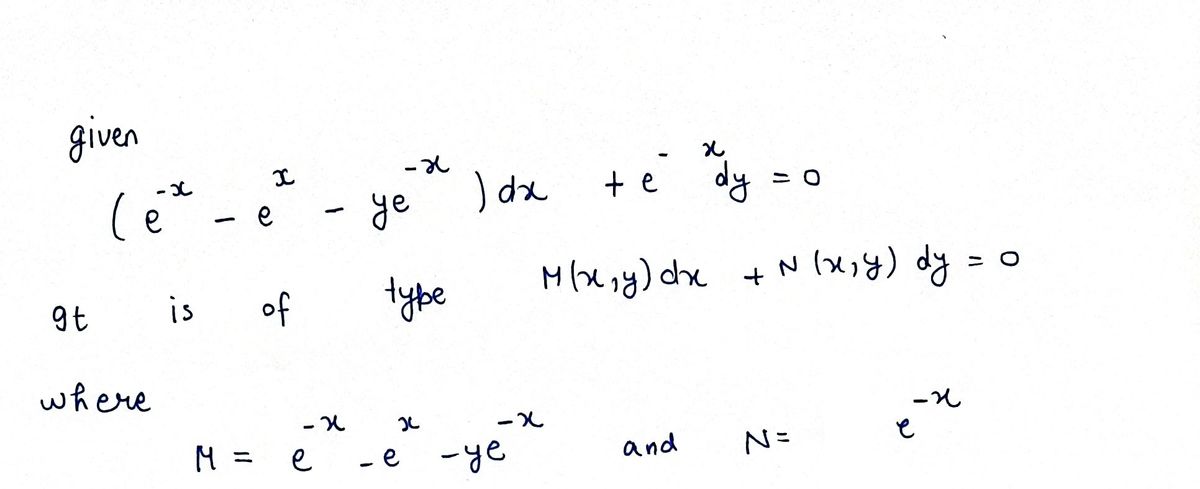 given
( e^{-x} - e^{x} - ye^{-x} ) dx + e^{-x} dy = 0
It is of type M(x,y) dx + N(x,y) dy = 0
where
M = e^{-x} - e^{x} - ye^{-x} and N = e^{-x}